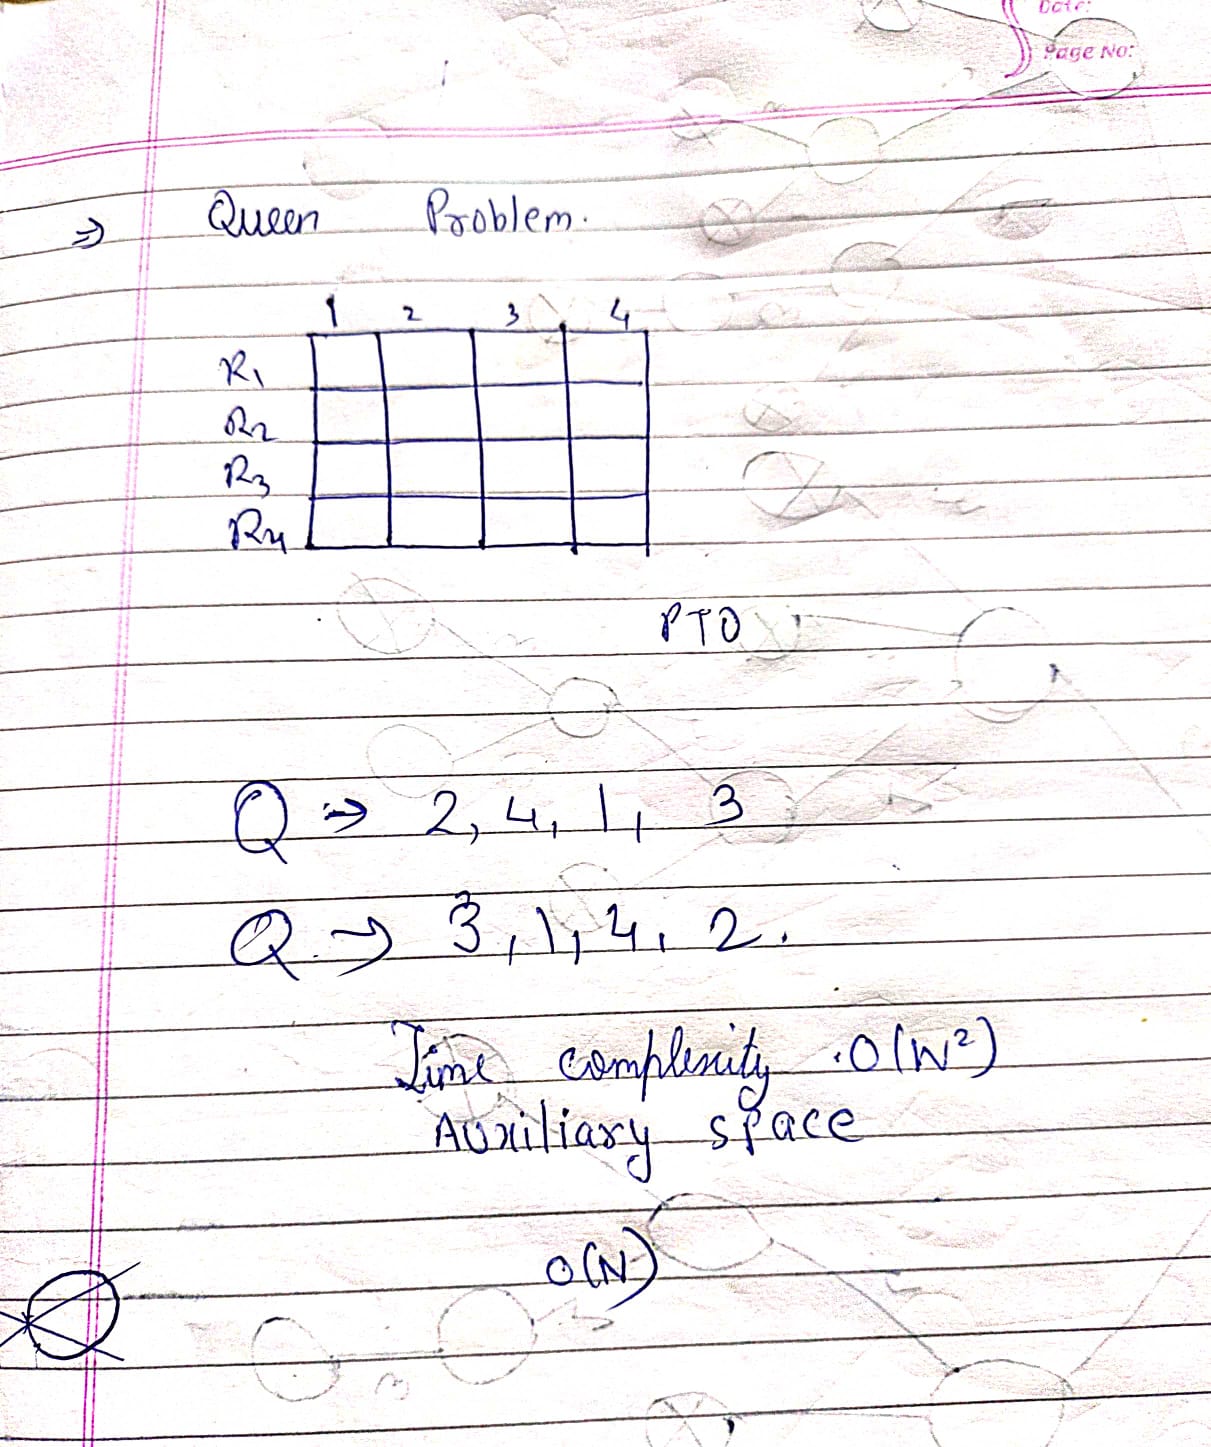 Date:
Page No:
⇒ Queen Problem.
1 2 3 4
R1
R2
R3
R4
PTO
Q ⇒ 2, 4, 1, 3
Q → 3, 1, 4, 2.
Time complexity O(N²)
Auxiliary space
O(N)